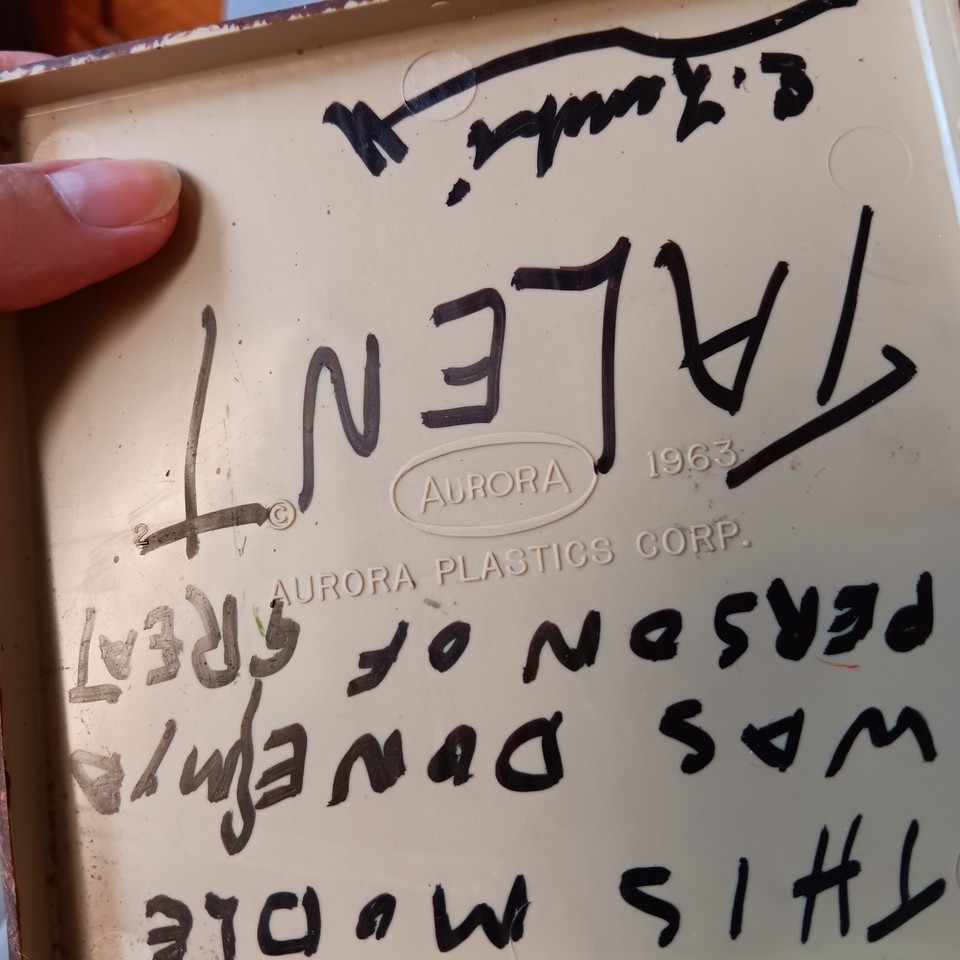 THIS MODLE
WAS DONE A
PERSON OF GREAT
TALENT
2 © AURORA 1963
AURORA PLASTICS CORP.